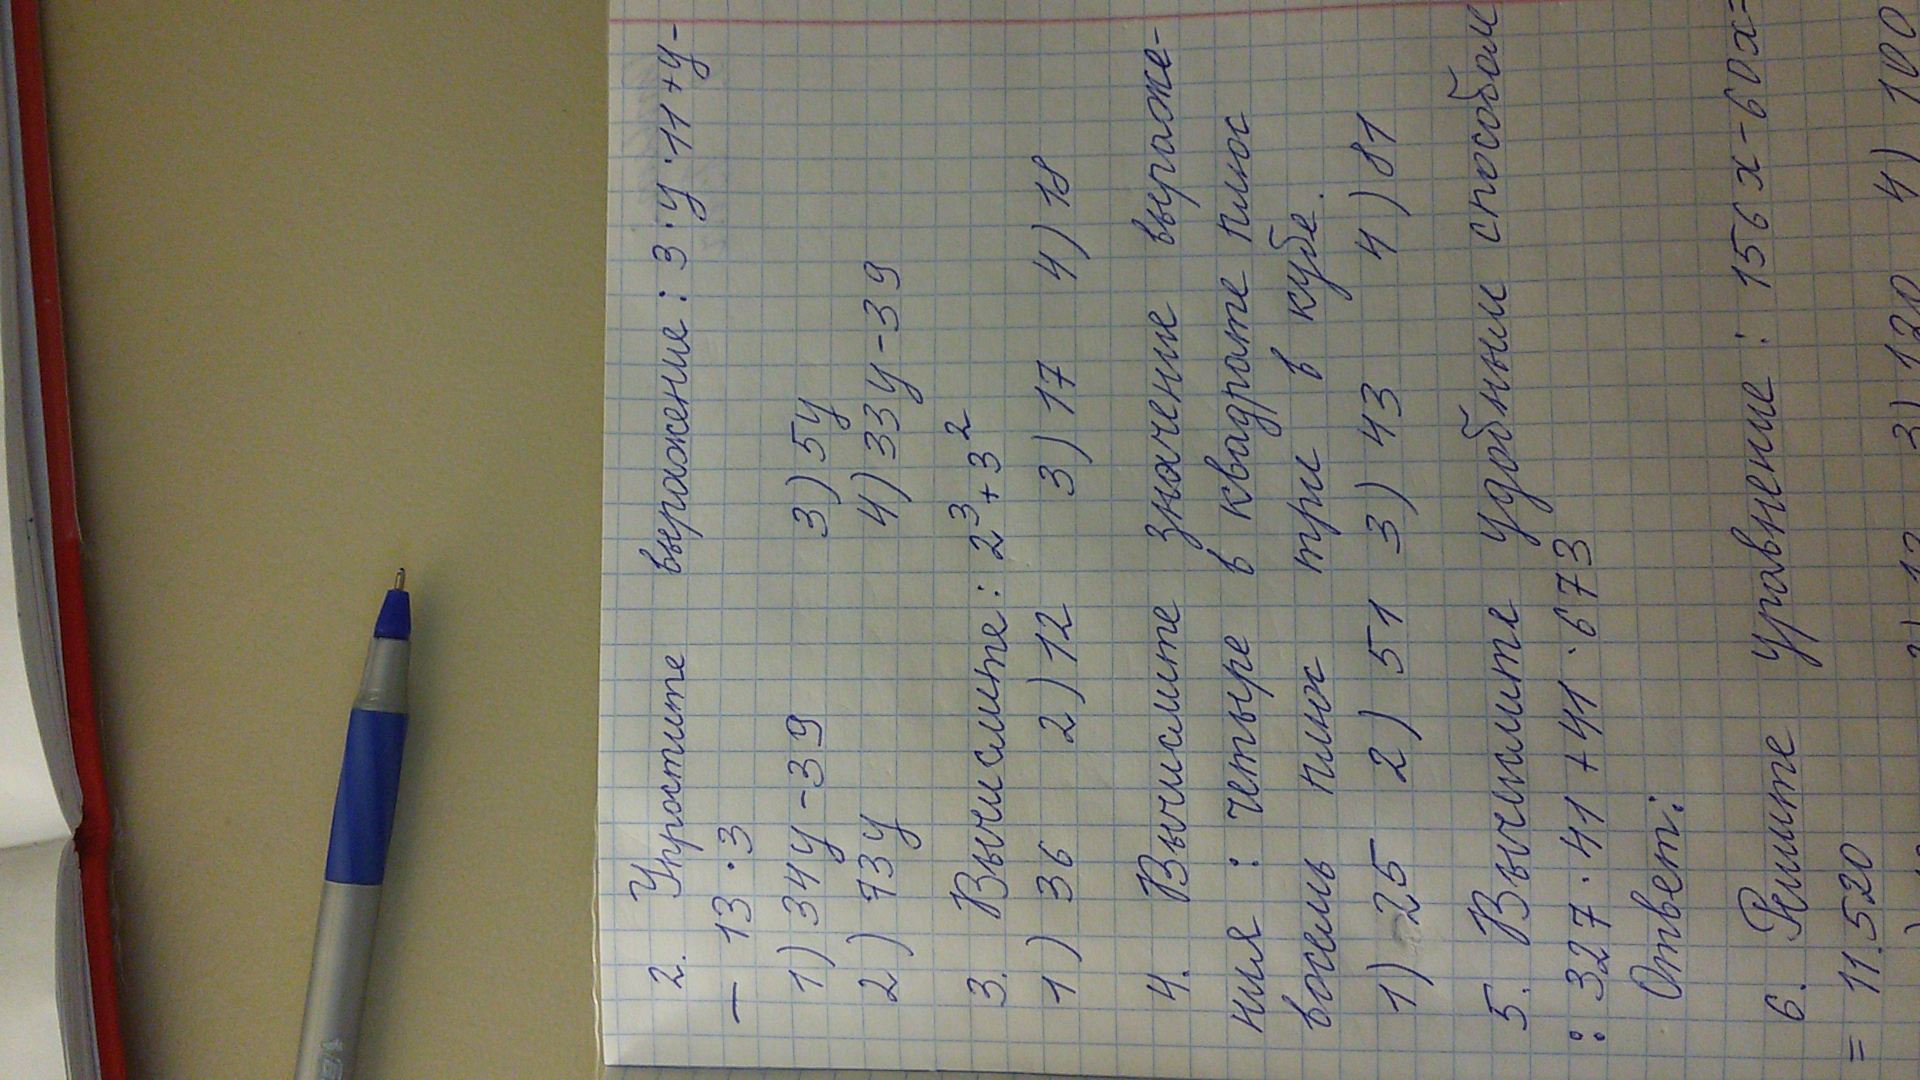 2. Упростите выражение: 3·y·11+y-
- 13·3
1) 34y-39 3) 5y
2) 73y 4) 33y-39
3. Вычислите: 2³+3²
1) 36 2) 12 3) 17 4) 18
4. Вычислите значение выраже-
ния: четыре в квадрате плюс
восемь плюс три в кубе.
1) 25 2) 51 3) 43 4) 81
5. Вычислите удобным способом
: 327·41+41·673
Ответ:
6. Решите уравнение: 156x-60x=
= 11.520
3) 120 4) 100